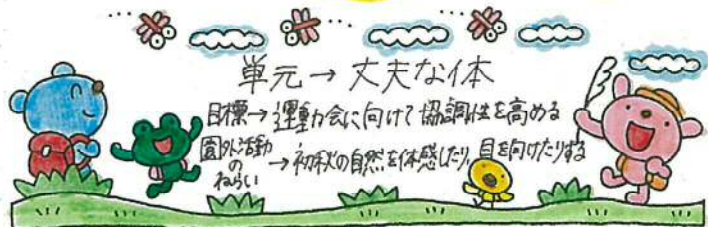 単元→丈夫な体
目標→運動会に向けて協調性を高める
園外活動のねらい→初秋の自然を体感したり、目を向けたりする